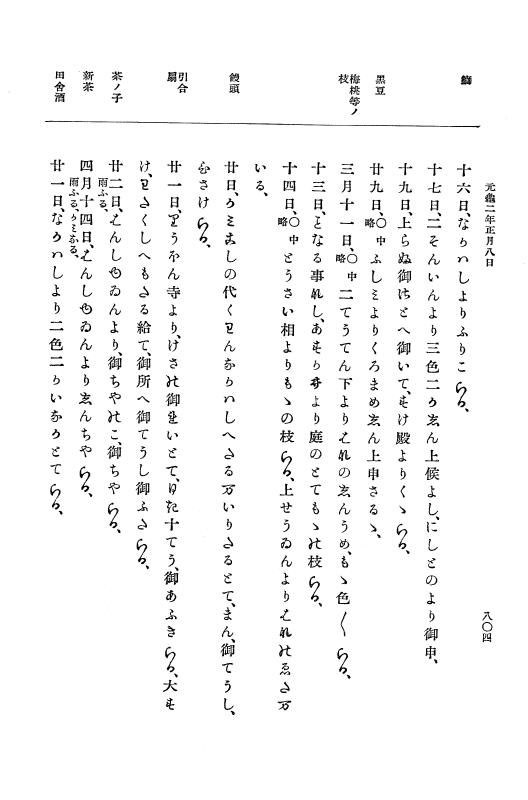 元龜二年正月八日
八〇四
鰤
十六日、なかハしよりふりこまいる、
十七日、二そんいんより三色二かゑん上候よし、にしとのより御申、
十九日、上らぬ御さとへ御いて、すけ殿よりくゝまいる、
黑豆
廿九日、〇中略ふしミよりくろまめゑん上申さるゝ、
梅桃等ノ枝
三月十一日、〇中略二てうてん下よりこれのゑんうめ、もゝ色〳〵まいる、
十三日、となる事なし、より庭のとてもゝの枝まいる、
十四日、〇中略とうさい相よりもゝの枝まいる、上せうゐんよりこれのゑたま
いる、
饅頭
廿日、の代くわんなかハしへたるまいりたるとて、まん、御てうし、
ひさけまいる、
引合
扇
廿一日、とうをん寺より、けさの御れいとて、ひき十てう、御あふきまいる、大す
け、わたくしへもたる給て、御所へ御てうし御ふたまいる、
茶ノ子
廿二日、せんしゆゐんより、御ちやのこ、御ちやまいる、雨ふる、
新茶
四月十四日、せんしゆゐんよりゑんちやまいる、雨ふる、かミなる、
田舍酒
廿一日、なかハしより二色二かいなかとてまいる、